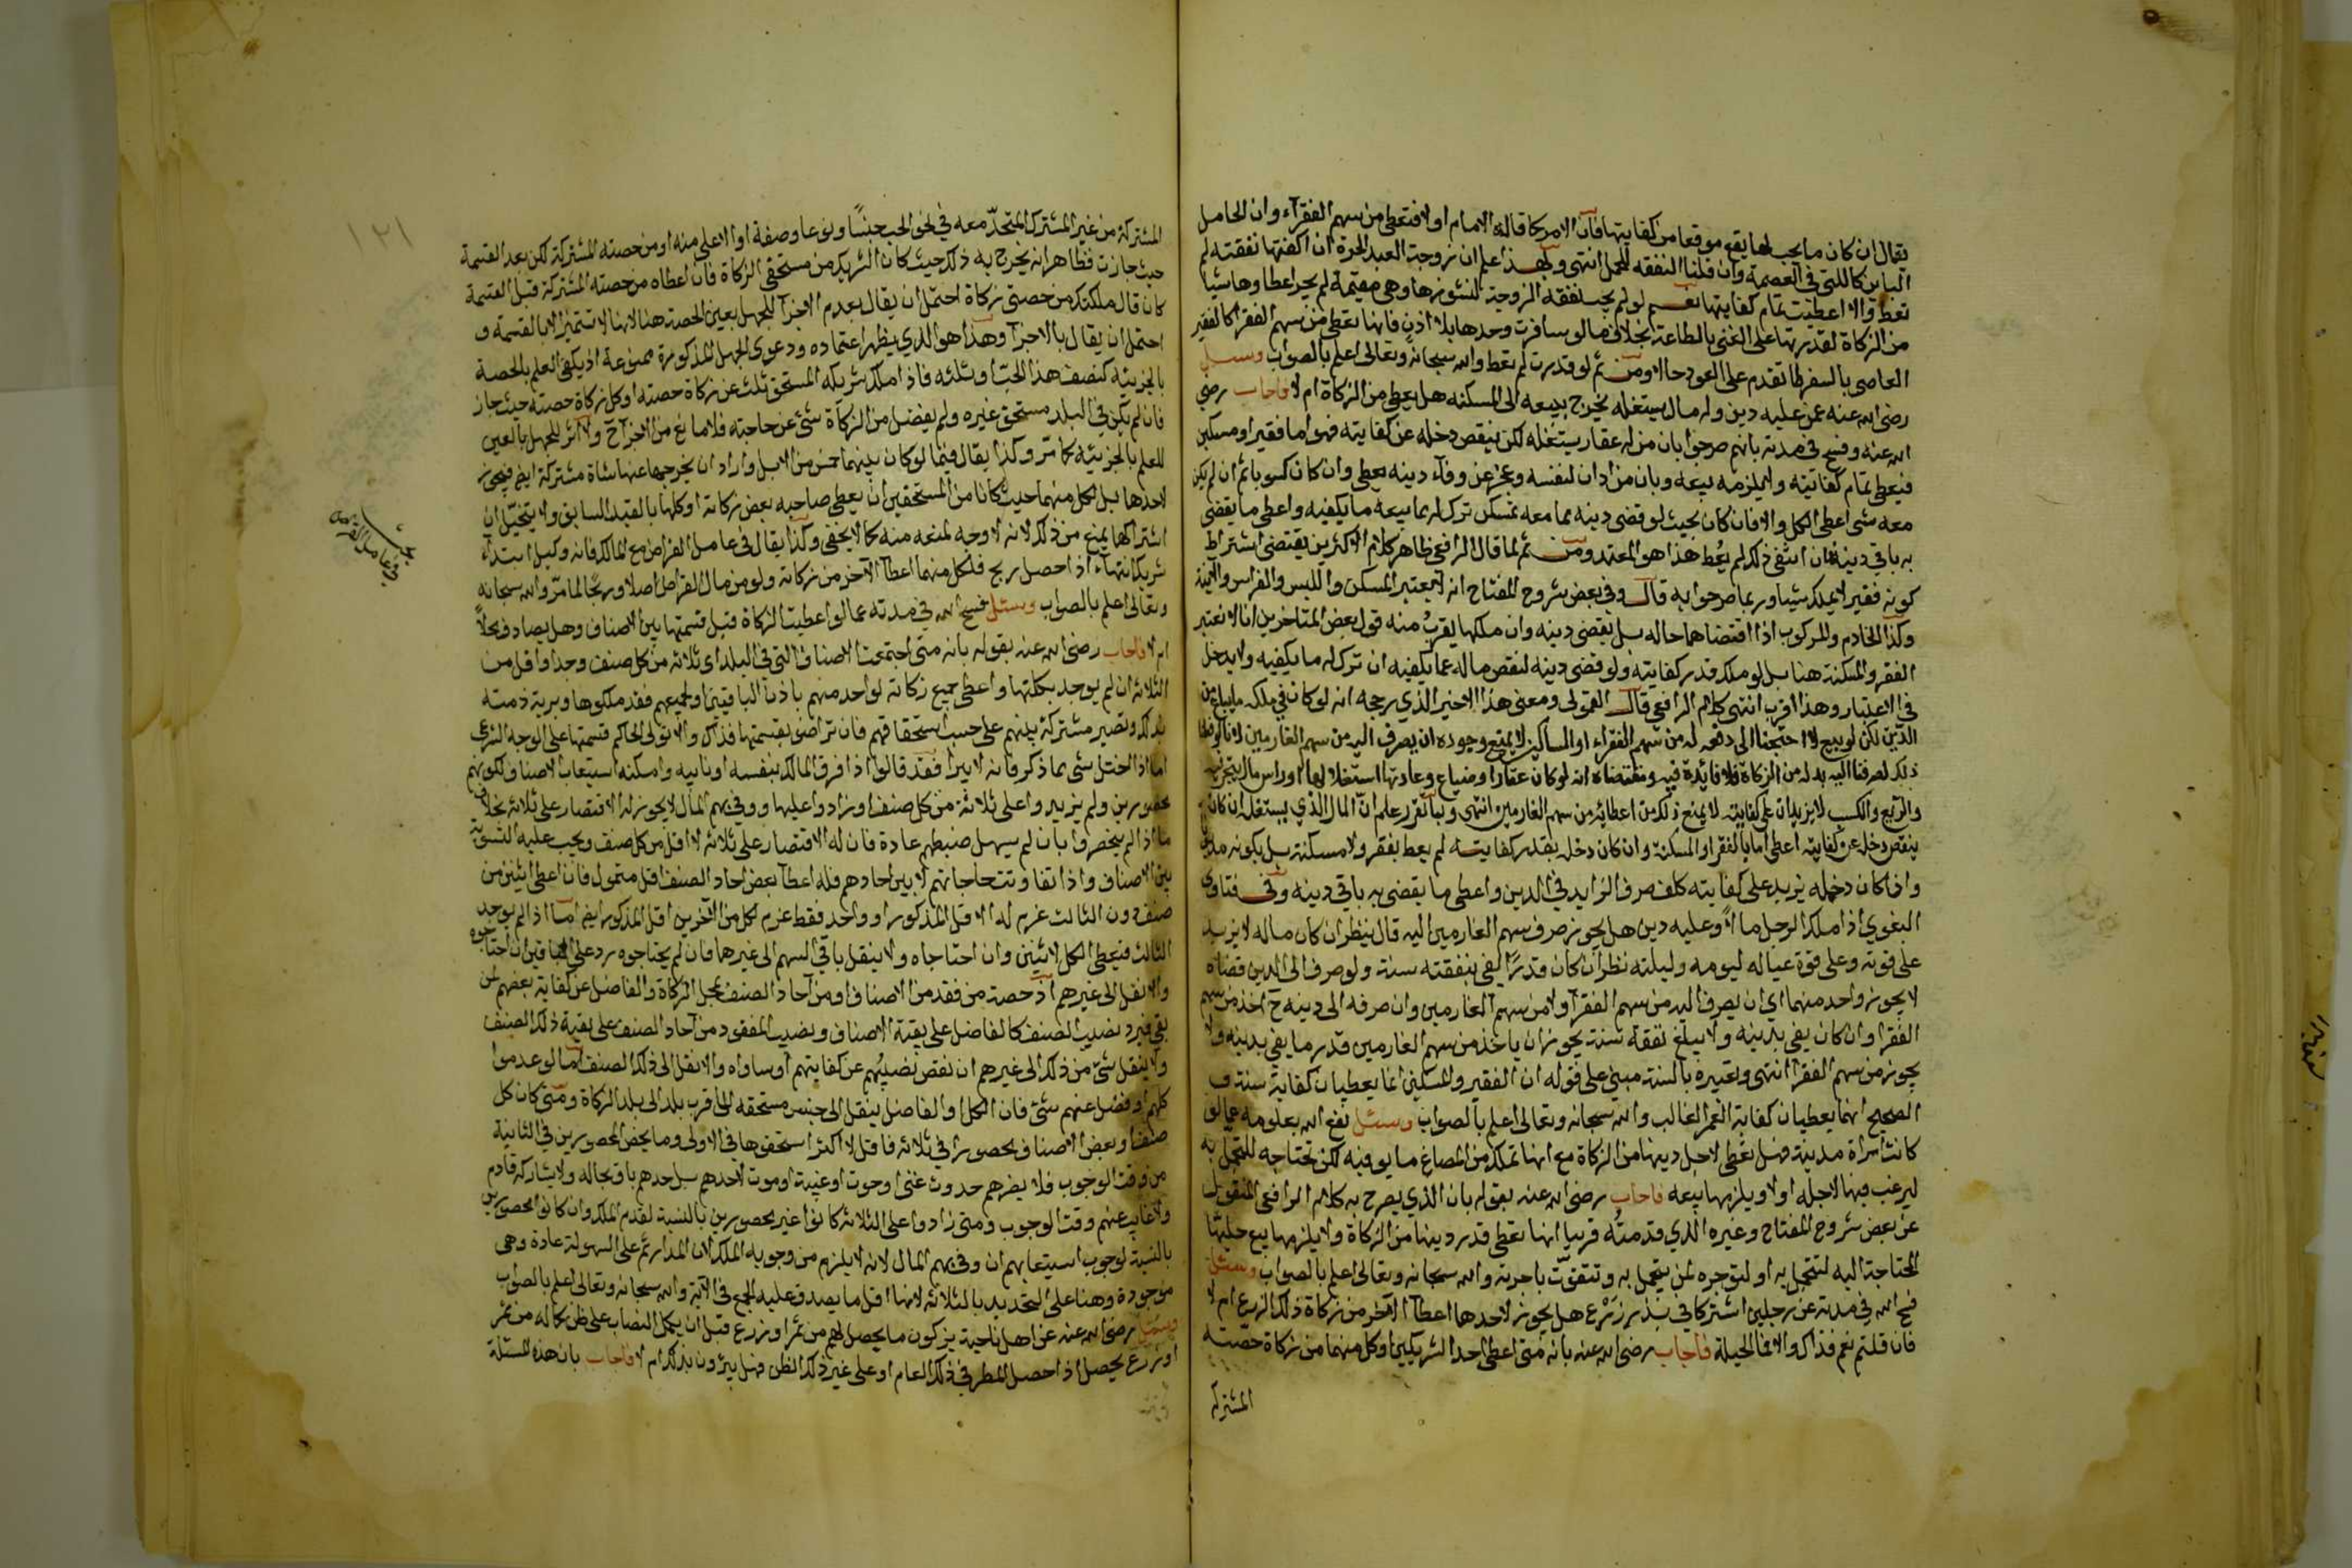 يقال ان كان ما يجب لها يقع موقعا من كفايتها فان الامر كما قاله الامام اولا فتعطى من سهم الفقرآء وان الحامل
الباين كاللتى فى العصمة وان قلنا النفقه للحمل انتهى وبهذا علم ان زوجة العبد الحرة ان اكفتها نفقته لم
تعط والا اعطيت تمام كفايتها نعم لو لم يجب نفقة الزوجة لنشوزها وهى مقيمة لم يجز اعطاوها شيا
من الزكاة لقدرتها على الغنى بالطاعة بخلاف ما لو سافرت وحدها بلا اذن فانها تعطى من سهم الفقرا كالفقير
العاصى بالسفر لما تقدم على العود حالا ومن ثم لو قدرت لم تعط والله سبحانه وتعالى اعلم بالصواب وسيل
رضى الله عنه عمن عليه دين وله مال يستغله يخرج ببيعه الى المسكنه هل يعطى من الزكاة ام لا فاجاب رضى
الله عنه وفسح فى مدته بانهم صرحوا بان من له عقار يستغله لكن ينقص دخله عن كفايته فهو اما فقير او مسكين
فيعطى تمام كفايته ولا يلزمه بيعه وبان من ادان لنفسه وعجز عن وفآء دينه يعطى وان كان كسوبا ثم ان لم يكن
معه شى اعطى الكل والا فان كان بحيث لو قضى دينه مما معه تمسكن ترك له مما بيعه ما يكفيه واعطى ما يقضى
به باقي دينه فان انتفى ذلك لم يُعط هذا هو المعتمد ومن ثم لما قال الرافعى ظاهر كلام الاكثرين يقتضى اشتراط
كونه فقيرا لا يملك شيا وربما صرحوا به قال وفى بعض شروح المفتاح انه لا يعتبر المسكن والملبس والفراش والآنية
وكذا الخادم والمركوب اذا اقتضاهما حاله بل يقضى دينه وان ملكها يقربُ منه قول بعض المتاخرين انا لا نعتبر
الفقر والمسكنة هنا بل لو ملك قدر كفايته ولو قضى دينه لنقص ماله عما يكفيه ان ترك له ما يكفيه ولا يدخل
فى الاعتبار وهذا اقرب انتهى كلام الرافعي قال القمولى ومعنى هذا الاخير الذي رجحه انه لو كان في ملكه ما يباع من
الدين لكن لو بيع لا احتجنا الى دفعه له من سهم الفقراء او المساكين لا يمتنع وجوده ان يصرف اليه من سهم الغارمين لانا لو قضا
ذلك لصرفنا اليه بدله من الزكاة فلا فائدة فيه ومقتضاه انه لو كان عقارا وضياع وعادتها استغلالها او راس مال يتجر به
والريع والكسب لا يزيدان على كفايته لا يمنع ذلك من اعطائه من سهم الغارمين انتهى وبما تقرر علم ان المال الذي يستغل ان كان
ينقص دخله عن كفايته اعطى اما بالفقر او المسكنة وان كان دخله بقدر كفايته لم يعط بفقر ولا مسكنة بل بكونه مدين
واذا كان دخله يزيد على كفايته كلف صرف الزايد في الدين واعطى ما يقضى به باقى دينه وفى فتاوى
البغوي اذا ملك الرجل مالاً وعليه دين هل يجوز صرف سهم الغارمين اليه قال ينظر ان كان ماله لا يزيد
على قوته وعلى قوة عياله ليومه وليلته نظر ان كان قدرًا يفى بنفقته سنة ولو صرف الى الدين قضاه
لا يجوز واحد منهما اي ان يصرف اليه من سهم الفقرآ ولا من سهم الغارمين وان صرفه الى دينه ح اخذ من سهم
الفقرا وان كان يفى بدينه ولا يبلغ نفقة سنة يجوز ان ياخذ من سهم الغارمين قدر ما يفى بدينه ولا
يجوز من سهم الفقرا انتهى وتعبيره بالسنة مبني على قوله ان الفقير والمسكين انما يعطيان كفاية سنة و
الصحيح انهما يعطيان كفاية العمر الغالب والله سبحانه وتعالى اعلم بالصواب وسئل نفع الله بعلومه عما لو
كانت امراة مدينة فهل تعطى لاجل دينها من الزكاة مع انها تملك من المصاغ ما يوفيه لكن تحتاجه للتجمل به
ليرغب فيها لاجله اولا ويلزمها بيعه فاجاب رضى الله عنه بقوله بان الذي يصرح به كلام الرافعى المنقول
عن بعض شروح المفتاح وغيره الذي قدمتُه قريبا انها تعطى قدر دينها من الزكاة ولا يلزمها بيع حليتها
المحتاجة اليه لتتجمل به او لتوجره لمن يتجمل به وتتقوّت باجرته والله سبحانه وتعالى اعلم بالصواب وسئل
فسح الله في مدته عن رجلين اشتركا في بذر زَرْع هل يجوز لاحدها اعطآ الآخر من زكاة ذلك الزرع ام لا
فان قلتم نعم فذاك والا فما الحيلة فاجاب رضى الله عنه بانه متى اعطى احد الشريكين او كل منهما من زكاة حصته
المشتركه
١٢١
المشتركة من غير المشترك المتحدّ معه في نحو الحب جنسًا ونوعا وصفة او الاعلى منه او من حصته المشتركة لكن بعد القسمة
حيث جازت فظاهر انه يخرج به ذلك حيث كان الشريك من مستحقى الزكاة فان اعطاه من حصته المشتركة قبل القسمة
كان قال ملكتك من حصتى زكاة احتمل ان يقال بعدم الاجزآ للجهل بعين الحصة هنا لانها لا تتميز الا بالقسمة و
احتمل ان يقال بالاجزآ وهذا هو الذي يظهر اعتماده ودعوى الجهل المذكورة ممنوعة اذ يكفى العلم بالحصة
بالجزيئة كنصف هذا الحبّ او ثلثه فاذا ملك شريكه المستحق ثلث عن زكاة حصته او كل زكاة حصته حيث جاز
فان لم يكن في البلد مستحق غيره ولم يفضل من الزكاة شئ عن حاجته فلا مانع من الاجزآ ولا اثر للجهل بالعين
للعلم بالجزيئة كما مرّ وكذا يقال فيما لو كان بينهما خمس من الابل واراد ان يخرجها عنها شاة مشتركة ايضا فيجوز
لاحدها بل لكل منهما حيث كانا من المستحقين ان يعطى صاحبه بعض زكاته او كلها بالقيد السابق ولا يتخيّل ان
اشتراكها يمنع من ذلك لانه لا وجه لمنعه منه كما لا يخفى وكذا يقال فى عامل القراض مع المالك فانه وكيل ابتدآء
شريك انتهآءً اذا حصل ربح فلكل منهما اعطآ الآخر من زكاته ولو من مال القراض اصلا وربحًا لما مرّ والله سبحانه
وتعالى اعلم بالصواب وسئل فسح الله في مدته عما لو اعطيت الزكاة قبل قسمتها بين الاصناف وهل يصادف محلاً
ام لا فاجاب رضى الله عنه بقوله بانه متى اجتمعت الاصناف التى فى البلد اى ثلاثه من كل صنف وجد او اقل من
الثلاثة ان لم يوجد بكلتها واعطى جميع زكاته لواحد منهم باذن الباقين او لجميعهم فقد ملكوها وبرية ذمته
بذلك وتصير مشتركة بينهم على حسب استحقاقهم فان تراضوا بقسمتها فذاك والا تولى الحاكم قسمتها على الوجه الشرعى
اما اذا اختل شى مما ذكر فانه لا يبرا فقد قالوا اذا فرق المالك بنفسه او نايبه وامكنه استيعاب الاصناف لكونهم
محصورين ولم يزيدوا على ثلاثة من كل صنف او زادوا عليها ووفى بهم المال لا يجوز له الاقتصار على ثلاثة بخلاف
ما اذا لم ينحصروا بان لم يسهل ضبطهم عادة فان له الاقتصار على ثلاثه لا اقل من كل صنف ويجب عليه التسوية
بين الاصناف واذا تفاوتت حاجاتهم لا بين احادهم فله اعطآ بعض احاد الصنف اقل متمول فان اعطى اثنين من
صنف دون الثالث غرم له الاقل المذكور او واحد فقط غرم لكل من الآخرين اقل المذكور ايضا اما اذا لم يوجد
الثالث فيعطى الكل لاثنين وان احتاجاه ولا ينقل باقى السهم الى غيرها فان لم يحتاجوه رد على الباقين ان احتاجوه
والا نقل الى غيرهم اذ حصة من فقد من الاصناف او من آحاد الصنف بمحل الزكاة والفاضل عن كفاية بعضهم لمن
بقى فيرد نصيب الصنف كالفاضل على بقية الاصناف ونصيب المفقود من آحاد الصنف على بقية ذلك الصنف
ولا ينقل شئ من ذلك الى غيرهم ان نقص نصيبُهم عن كفايتهم او ساواه والا نقل الى ذلك الصنف اما لو عدموا
كلهم او فضل عنهم شئ فان الكل او الفاضل ينقل الى جنس مستحقه الى اقرب بلد الى بلد الزكاة ومتى كان كل
صنف او بعض الاصناف محصورا في ثلاثه فاقل لا اكثر استحقوها فى الاولى وما يخص المحصورين فى الثانية
من وقت الوجوب فلا يضرهم حدوث غنى او غيبة او موت لاحدهم بل حقهم باق بحاله ولا يشاركه قادم
والغايب عنهم وقت الوجوب ومتى زادوا على الثلاثه كانوا غير محصورين بالنسبة لتقدم الملك وان كانوا محصورين
بالنسبة لوجوب استيعابهم ان وفى بهم المال لانه لا يلزم من وجوبه الملك لان المدار ثم على السهولة عادة وهى
موجودة وهنا على التحديد بالثلاثه لانها اقل ما يصدق عليه الجمع فى الآية والله سبحانه وتعالى اعلم بالصواب
وسئل رضى الله عنه عن اهل ناحية يزكون ما يحصل لهم من ثمر او زرع قبل ان يكمل النصاب على ظن كماله من ثمر
او زرع يحصل اذا حصل المطر في ذلك العام او على غير ذلك الظن فهل يبرؤن بذلك ام لا فاجاب بان هذه المسئلة